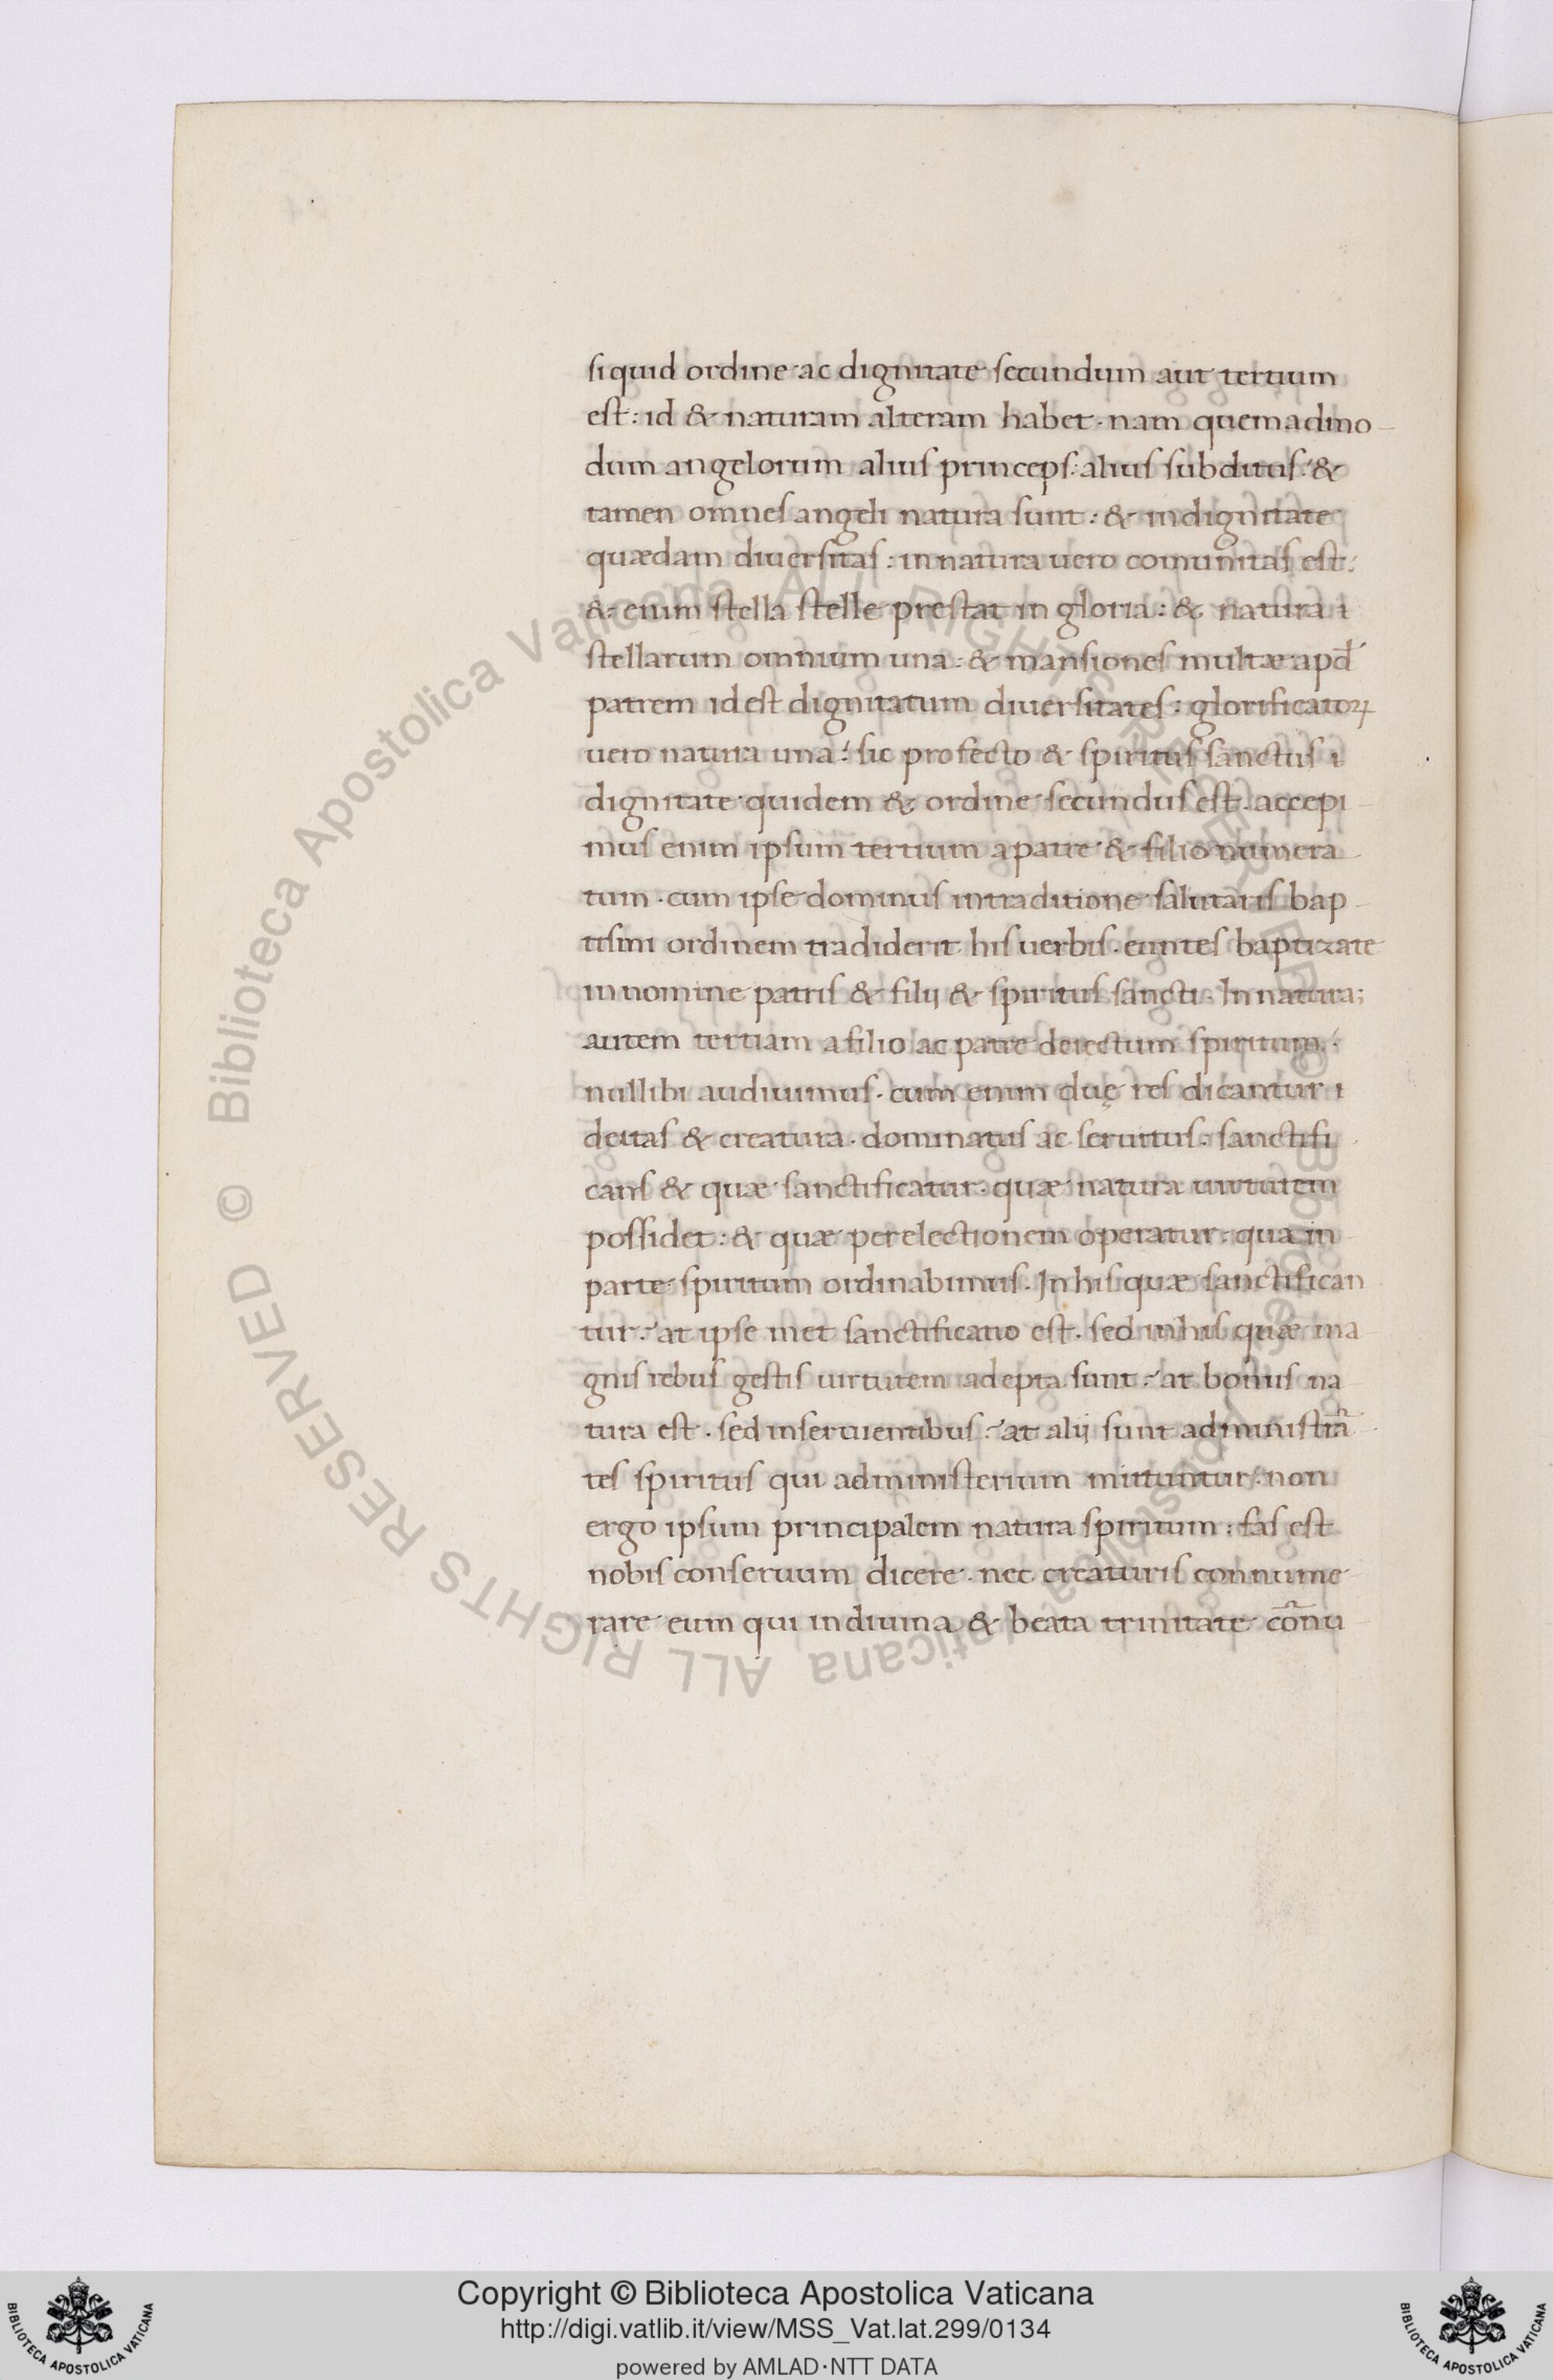 siquid ordine ac dignitate secundum aut tertium
est: id & naturam alteram habet. nam quemadmo
dum angelorum alius princeps: alius subditus: &
tamen omnes angeli natura sunt: & in dignitate
quædam diuersitas: in natura uero comunitas est:
& enim stella stelle prestat in gloria: & natura ı
stellarum omnium una: & mansiones multæ apd̄
patrem id est dignitatum diuersitates: glorificatoꝝ
uero natura una: sic profecto & spiritus sanctus ı
dignitate quidem & ordine secundus est. accepi
mus enim ipsum tertium a patre & filio numera
tum. cum ipse dominus in traditione salutaris bap
tismi ordinem tradiderit his uerbis. euntes baptizate
in nomine patris & filij & spiritus sancti. In natura;
autem tertiam a filio ac patre deiectum spiritum:
nullibi audiuimus. cum enim duę res dicantur ı
deitas & creatura. dominatus ac seruitus. sanctifi
cans & quæ sanctificatur. quæ natura uirtutem
possidet: & quæ per electionem operatur. qua in
parte spiritum ordinabimus. In his quæ sanctifican
tur: at ipse met sanctificatio est. sed in his quæ ma
gnis rebus gestis uirtutem adepta sunt: at bonus na
tura est. sed inseruientibus: at alij sunt administrā
tes spiritus qui ad ministerium mittuntur: non
ergo ipsum principalem natura spiritum: fas est
nobis conseruum dicere. nec creaturis connume
rare eum qui in diuina & beata trinitate cōnu
Copyright © Biblioteca Apostolica Vaticana
http://digi.vatlib.it/view/MSS_Vat.lat.299/0134
powered by AMLAD·NTT DATA
BIBLIOTECA APOSTOLICA VATICANA
BIBLIOTECA APOSTOLICA VATICANA
© Biblioteca Apostolica Vaticana ALL RIGHTS RESERVED
© Biblioteca Apostolica Vaticana ALL RIGHTS RESERVED